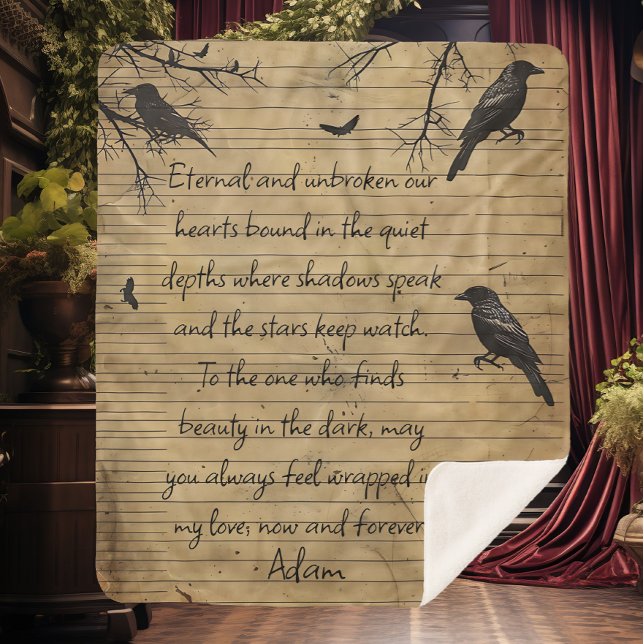 Eternal and unbroken our
hearts bound in the quiet
depths where shadows speak
and the stars keep watch.
To the one who finds
beauty in the dark, may
you always feel wrapped
my love; now and forever
Adam